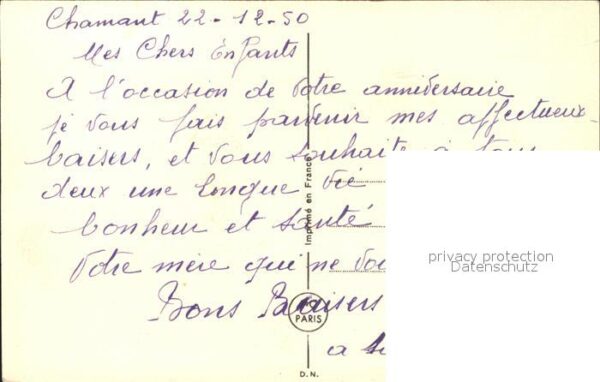 Chamant 22-12-50
Mes Chers Enfants
A l'occasion de Votre anniversaire
je vous fais parvenir mes affectueux
baisers, et vous souhaite à tous
deux une longue vie
bonheur et santé
Votre mère qui ne vou
Bons Baisers
a
Imprimé en France
PARIS
D.N.
privacy protection
Datenschutz